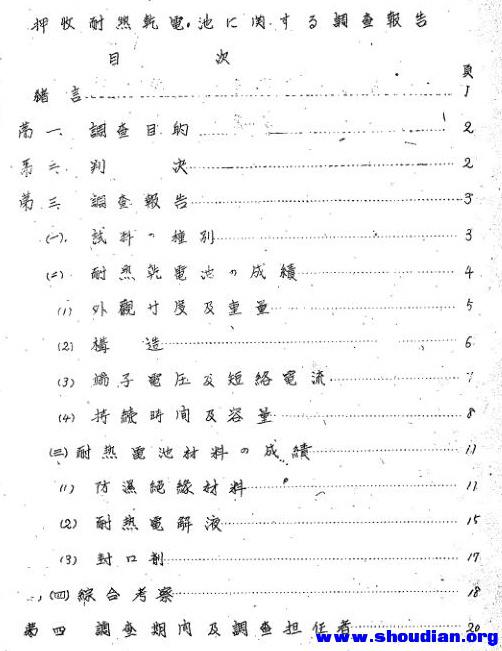 押收耐熱乾電池に関する調査報告
目 次
頁
緒言 1
第一 調査目的 2
第二 判 決 2
第三 調査報告 3
(一). 試料の種別 3
(二) 耐熱乾電池の成績 4
(1) 外觀寸度及重量 5
(2) 構 造 6
(3) 端子電圧及短絡電流 7
(4) 持續時间及容量 8
(三) 耐熱電池材料の成績 11
(1) 防濕絕緣材料 11
(2) 耐熱電解液 15
(3) 封口剤 17
(四) 綜合考察 18
第四 調査期间及調査担任者 20
www.shoudian.org